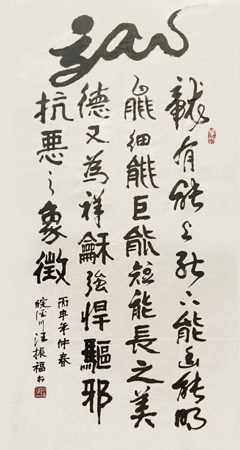 龍有能上能下能幽能明
能細能巨能短能長之美
德又為祥龢強悍驅邪
抗惡之象徵
丙申年仲春
皖川汪振福